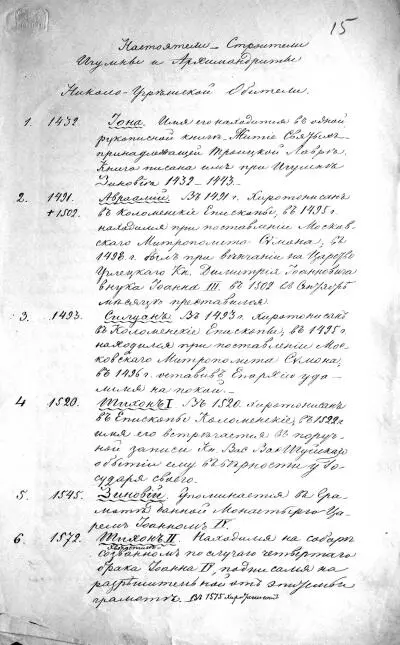 15
Настоятели – Строители
Игумны и Архимандриты
Николо-Угрѣшской Обители.
1. 1432. Іона. Имя его находится въ одной
рукописной книгѣ Житіе Святыхъ
принадлежащей Троицкой Лаврѣ.
Книга писана имъ при Игуменѣ
Зиновіѣ 1432–1443.–
2. 1491. Авраамій. Въ 1491 г. Хиротонисанъ
+ 1502. въ Коломенскіе Епископы, въ 1495 г.
находился при поставленіи Москов-
скаго Митрополита Сѵмона; въ
1498 г. былъ при вѣнчаніи на Царство
Углецкаго Кн. Димитрія Іоанновича
внука Іоанна III. въ 1502 въ
мѣсяцѣ преставился.
3. 1493. Силуанъ. Въ 1493 г. Хиротонисанъ
въ Коломенскіе Епископы; въ 1495 г.
находился при поставленіи Мос-
ковскаго Митрополита Сѵмона;
въ 1496 г. оставивъ Епархію уда-
лился на покой.–
4 1520. Тихонъ I. Въ 1520. хиротонисанъ
въ Епископы Коломенскіе; въ 1522 г.
имя его встрѣчается въ поруч-
ной записи Кн. Вас. Вас. Шуйскаго
о бытіи ему въ вѣрности у Го-
сударя своего.
5. 1545. Зиновій. Упоминается въ Гра-
мотѣ данной Монастырю Ца-
ремъ Іоанномъ IV.
6. 1572. Тихонъ II. Находился на соборѣ
созванномъ по случаю четвертаго
брака Іоанна IV, подписался на
разрѣшительной отъ эпитеміи
грамотѣ. – Въ 1575